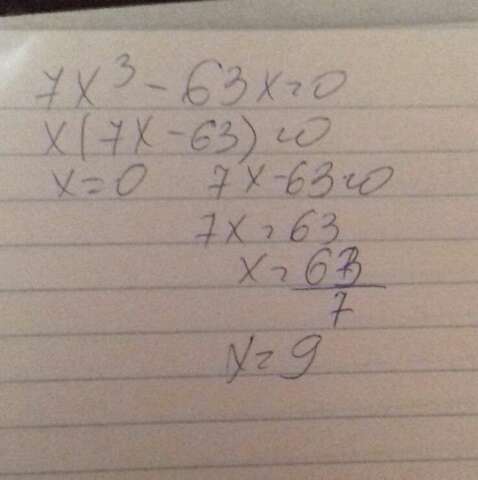 7x³ - 63x = 0
x(7x - 63) = 0
x = 0 7x - 63 = 0
7x = 63
x = 63/7
x = 9